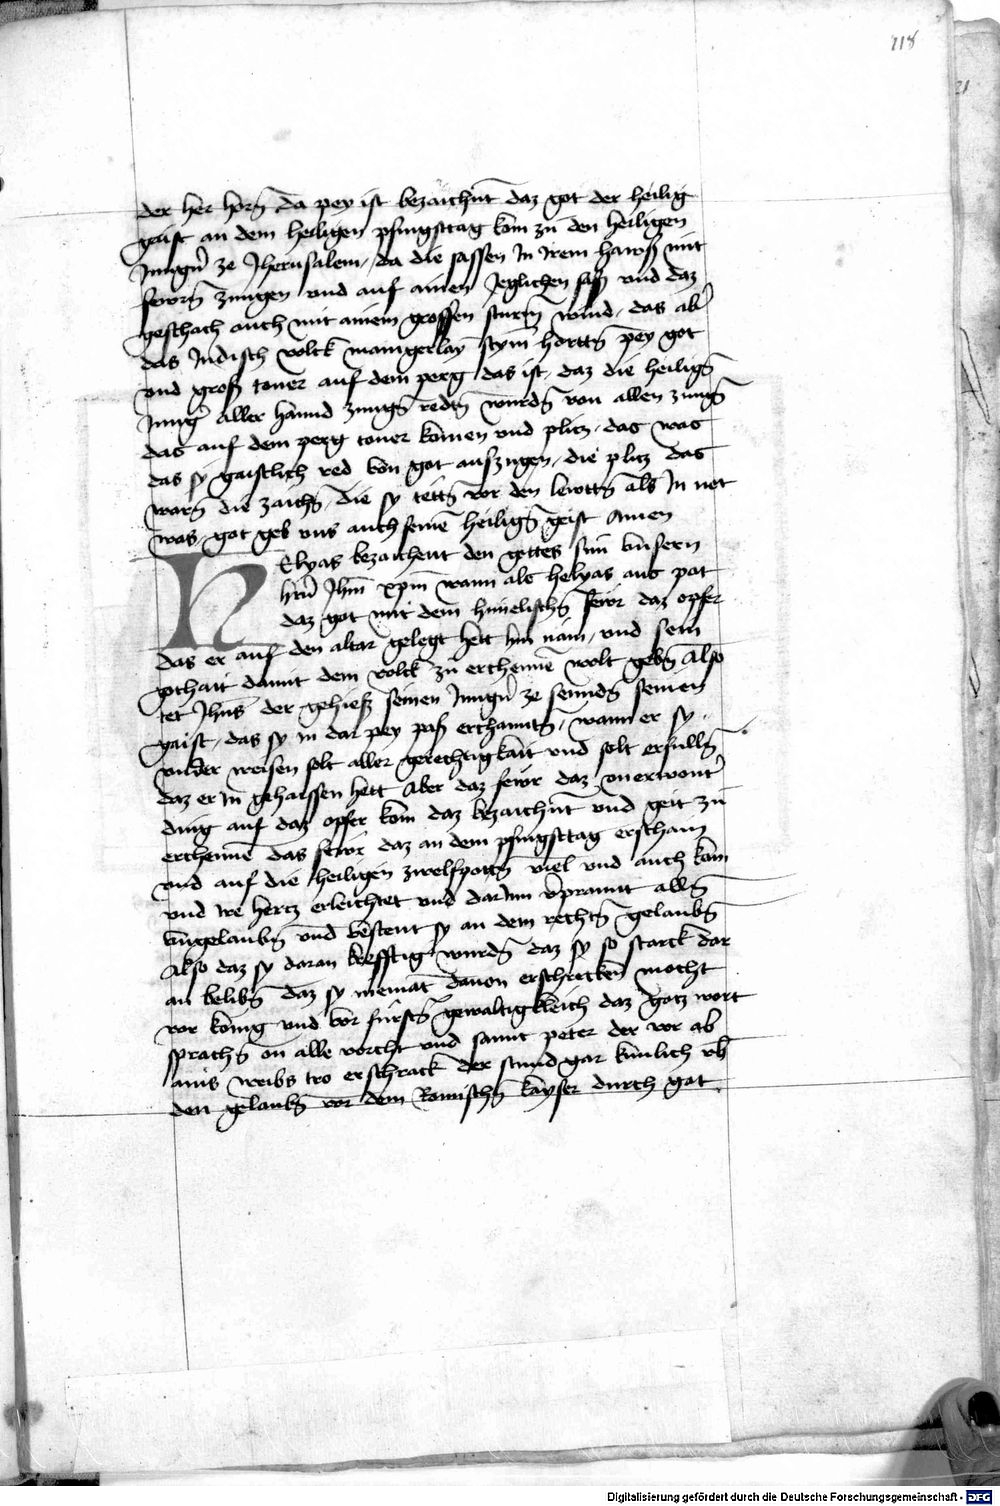 118
der her horn̄ da pey ist bezaichnt̄ daz got der heilig
geist an dem heiligen pfingsttag kom zu den heiligen
Jungn̄ ze Jherusalem / da die sassen in irem hawß mit
fewrn̄ zungen vnd auf ainen Jeglichen saß vnd daz
geschach auch mit ainem grossen sturm wind / das aber
das Judisch volck manigerlay stym̄ hortt̄n pey got
vnd groß toner auf dem perg das ist / daz die heilign̄
Junḡ aller hannd zungn̄ redtn̄ wurdn̄ von allen zungn̄
das auf dem perg toner komen vnd plicz / das was
das sy gaistlich red von got aufzugen / die plicz das
warn̄ die zaichn̄ / die sy tettn̄ vor den lewttn̄ als In not
was / got geb vns auch seinē heilign̄ geist Amen
HElyas bezaichent den gottes sun vnsern
hrn̄ Jhm̄ xpm̄ wann als helyas aus pat
daz got mit dem himelischn̄ fewr daz opfer
das er auf den altar gelegt hett hin nam / vnd sein
gothait damit dem volck zu erchennē wolt gebn̄ Also
tet Jhus der gehieß seinen Jungn̄ ze senndn̄ seinen
gaist / das sy in dar pey paß erchanntn̄ / wann er sy
vnder weisen solt aller gerechtigkait vnd solt erfulln̄
daz er in gehaissen hett Aber daz fewr daz vnerwont̄
ding auf daz opfer kom daz bezaichnt̄ vnd geit zu
erchennē das fewr daz an dem pfingsttag erschain
vnd auf die heiligen zwelfpottn̄ viel vnd auch kam
vnd ire hercz erleichtet vnd darinn v̄prannt alln̄
vngelaubn̄ vnd bestent sy an dem rechtn̄ gelaubn̄
Also daz sy daran krefftig wurdn̄ daz sy so starck dar
an belibn̄ daz sy niemāt dauon erschrecken mocht
vor konig vnd vor fürstn̄ gewaltigkleich daz gotz wort
sprachn̄ on alle vorcht vnd sannt peter der vor ab
ains weibs tro erschrack der stund gar künlich vb̄
den gelaubn̄ vor dem Romischn̄ kayser durch got
Digitalisierung gefördert durch die Deutsche Forschungsgemeinschaft - DFG